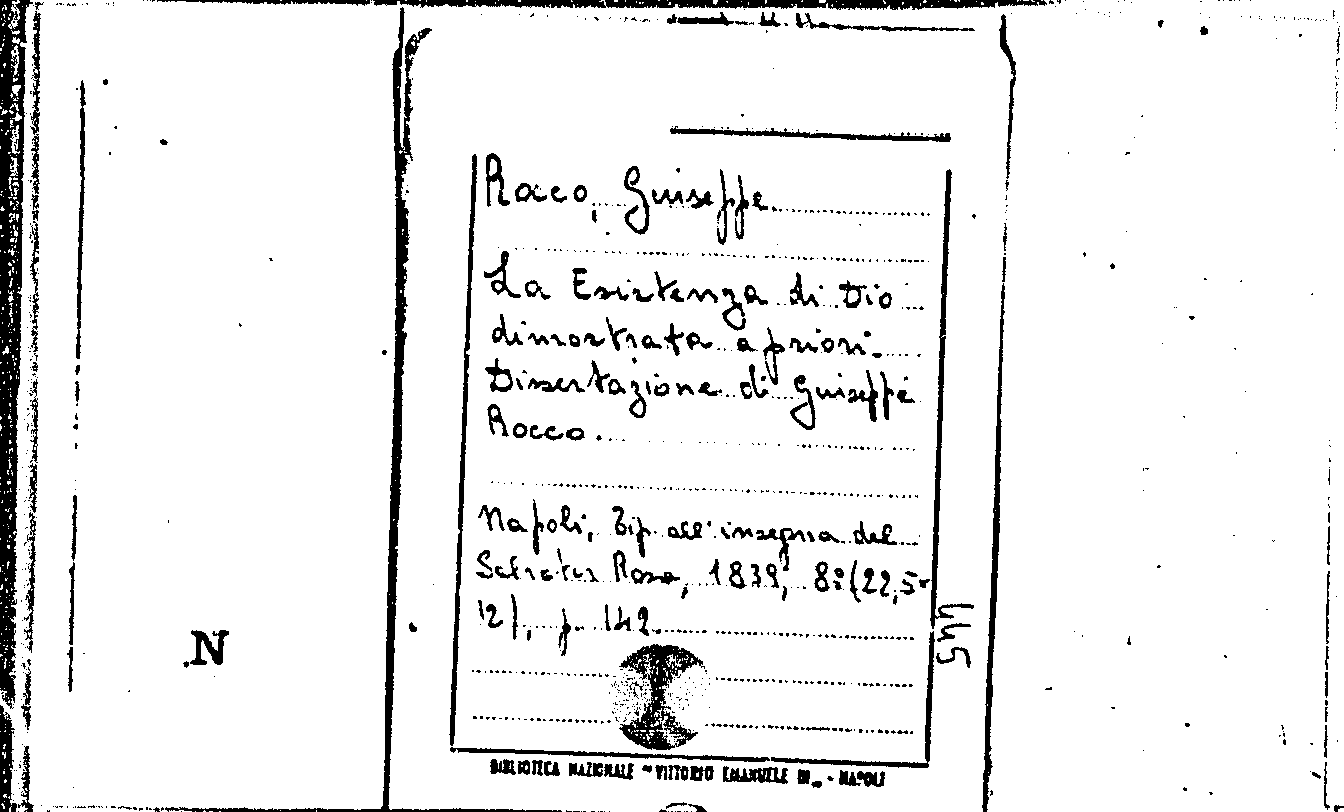 Rocco, Giuseppe.
La Esistenza di Dio
dimostrata a priori.
Dissertazione di Giuseppe
Rocco.
Napoli, Tip. all'insegna del
Salvator Rosa, 1839, 8º (22,5-
12), p. 142.
445
.N
BIBLIOTECA NAZIONALE "VITTORIO EMANUELE III" - NAPOLI